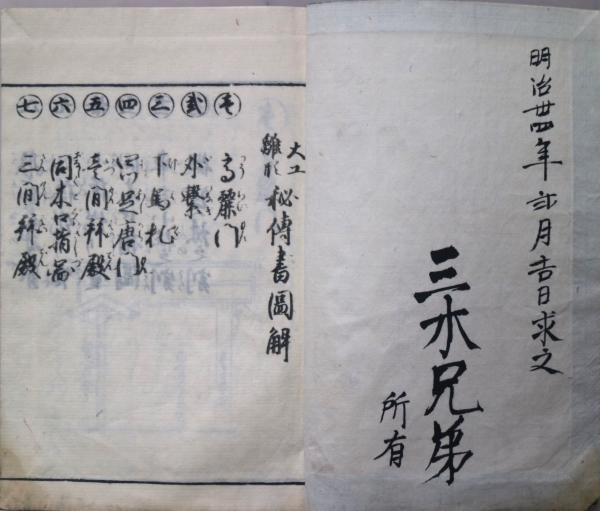 明治卅四年弐月吉日求之
三水兄弟
所有
大工
雛形 秘傳書圖解
壱 高麗門
弐 外繋
三 下馬札
四 四足唐門
五 壱間拝殿
六 同木口指図
七 三間拝殿